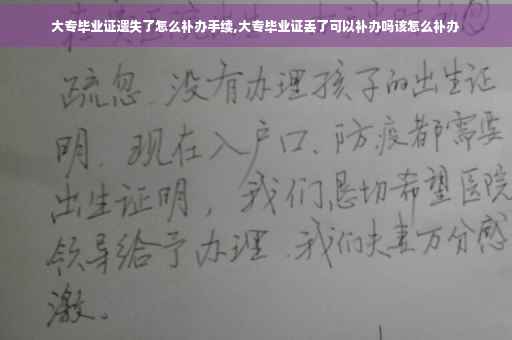 大专毕业证遗失了怎么补办手续,大专毕业证丢了可以补办吗该怎么补办
疏忽、没有办理孩子的出生证
明、现在入户口、防疫都需要
出生证明，我们恳切希望医院
领导给予办理、我们夫妻万分感
激。